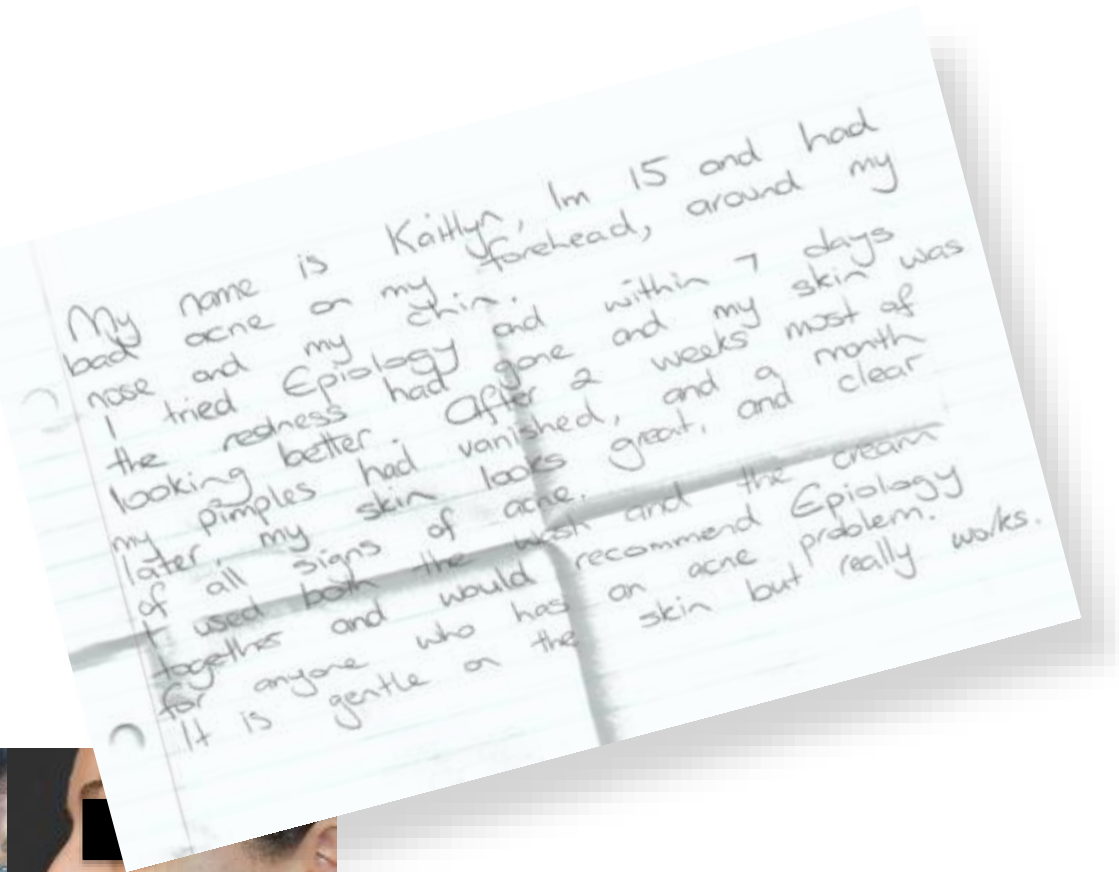 My name is Kaitlyn, Im 15 and had
bad acne on my forehead, around my
nose and my chin.
I tried Epiology and within 7 days
the redness had gone and my skin was
looking better. After 2 weeks most of
my pimples had vanished, and a month
later, my skin looks great, and clear
of all signs of acne.
I used both the wash and the cream
together and would recommend Epiology
for anyone who has an acne problem.
It is gentle on the skin but really works.